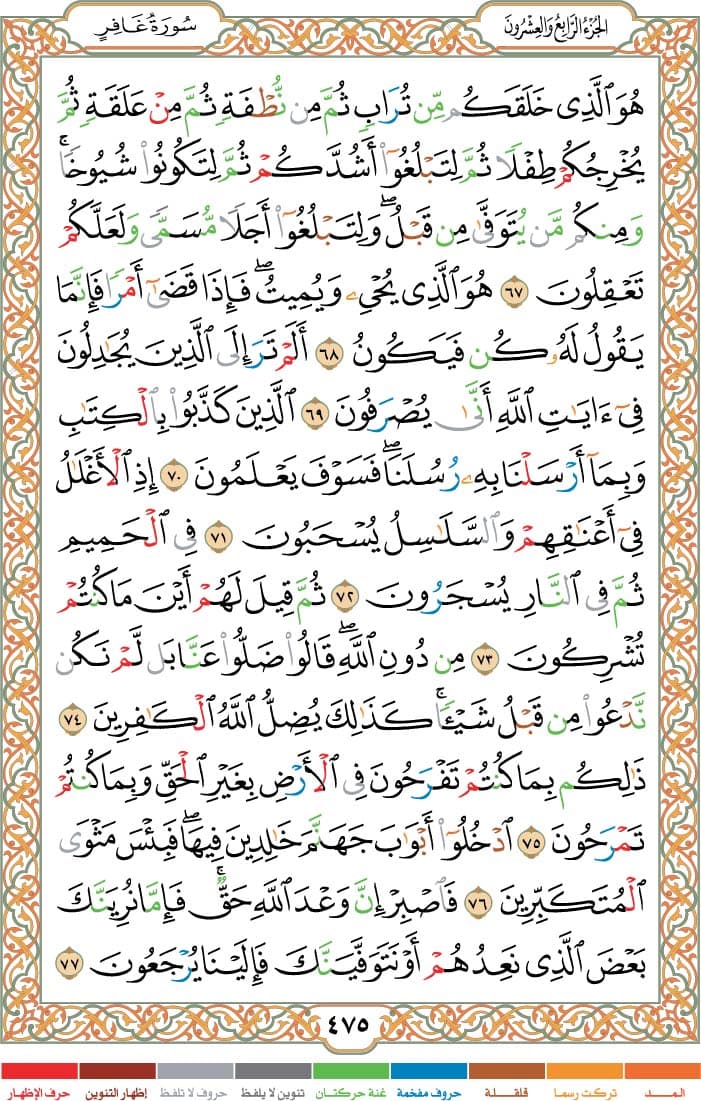 الجُزْءُ الرَّابِعُ وَالعِشْرُونَ
سُورَةُ غَافِرٍ
هُوَ ٱلَّذِى خَلَقَكُم مِّن تُرَابٍ ثُمَّ مِن نُّطْفَةٍ ثُمَّ مِنْ عَلَقَةٍ ثُمَّ
يُخْرِجُكُمْ طِفْلًا ثُمَّ لِتَبْلُغُوٓا۟ أَشُدَّكُمْ ثُمَّ لِتَكُونُوا۟ شُيُوخًا ۚ
وَمِنكُم مَّن يُتَوَفَّىٰ مِن قَبْلُ ۖ وَلِتَبْلُغُوٓا۟ أَجَلًا مُّسَمًّى وَلَعَلَّكُمْ
تَعْقِلُونَ ٦٧ هُوَ ٱلَّذِى يُحْىِۦ وَيُمِيتُ ۖ فَإِذَا قَضَىٰٓ أَمْرًا فَإِنَّمَا
يَقُولُ لَهُۥ كُن فَيَكُونُ ٦٨ أَلَمْ تَرَ إِلَى ٱلَّذِينَ يُجَٰدِلُونَ
فِىٓ ءَايَٰتِ ٱللَّهِ أَنَّىٰ يُصْرَفُونَ ٦٩ ٱلَّذِينَ كَذَّبُوا۟ بِٱلْكِتَٰبِ
وَبِمَآ أَرْسَلْنَا بِهِۦ رُسُلَنَا ۖ فَسَوْفَ يَعْلَمُونَ ٧٠ إِذِ ٱلْأَغْلَٰلُ
فِىٓ أَعْنَٰقِهِمْ وَٱلسَّلَٰسِلُ يُسْحَبُونَ ٧١ فِى ٱلْحَمِيمِ
ثُمَّ فِى ٱلنَّارِ يُسْجَرُونَ ٧٢ ثُمَّ قِيلَ لَهُمْ أَيْنَ مَا كُنتُمْ
تُشْرِكُونَ ٧٣ مِن دُونِ ٱللَّهِ ۖ قَالُوا۟ ضَلُّوا۟ عَنَّا بَل لَّمْ نَكُن
نَّدْعُوا۟ مِن قَبْلُ شَيْـًٔا ۚ كَذَٰلِكَ يُضِلُّ ٱللَّهُ ٱلْكَٰفِرِينَ ٧٤
ذَٰلِكُم بِمَا كُنتُمْ تَفْرَحُونَ فِى ٱلْأَرْضِ بِغَيْرِ ٱلْحَقِّ وَبِمَا كُنتُمْ
تَمْرَحُونَ ٧٥ ٱدْخُلُوٓا۟ أَبْوَٰبَ جَهَنَّمَ خَٰلِدِينَ فِيهَا ۖ فَبِئْسَ مَثْوَى
ٱلْمُتَكَبِّرِينَ ٧٦ فَٱصْبِرْ إِنَّ وَعْدَ ٱللَّهِ حَقٌّ ۚ فَإِمَّا نُرِيَنَّكَ
بَعْضَ ٱلَّذِى نَعِدُهُمْ أَوْ نَتَوَفَّيَنَّكَ فَإِلَيْنَا يُرْجَعُونَ ٧٧
٤٧٥
المـــد تركت رسما قلقـلة حروف مفخمة غنة حركتان تنوين لا يلفظ حروف لا تلفظ إظهار التنوين حرف الإظهار